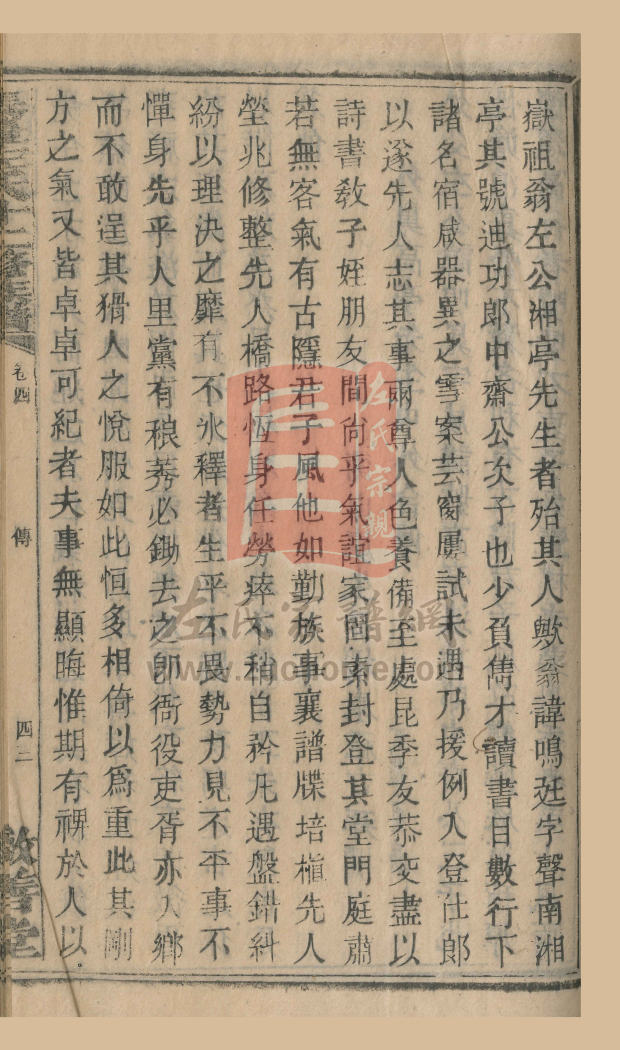 嶽祖翁左公湘亭先生者殆其人歟翁諱鳴廷字聲南湘
亭其號迪功郎中齋公次子也少負雋才讀書目數行下
諸名宿咸器異之雪案芸窗屢試未遇乃援例入登仕郎
以遂先人志其事兩尊人色養備至處昆季友恭交盡以
詩書教子姪朋友間尚平氣誼家固素封登其堂門庭肅
若無客氣有古隱君子風他如勤族事襄譜牒培植先人
塋兆修整先人橋路恆身任勞瘁不稍自矜凡遇盤錯糾
紛以理決之靡有不氷釋者生平不畏勢力見不平事不
憚身先乎人里黨有稂莠必鋤去之卽衙役吏胥亦入鄉
而不敢逞其猾人之悅服如此恒多相倚以爲重此其剛
方之氣又皆卓卓可紀者夫事無顯晦惟期有裨於人以
卷四
傳
四三
敦善堂
左氏宗親
左氏家譜網